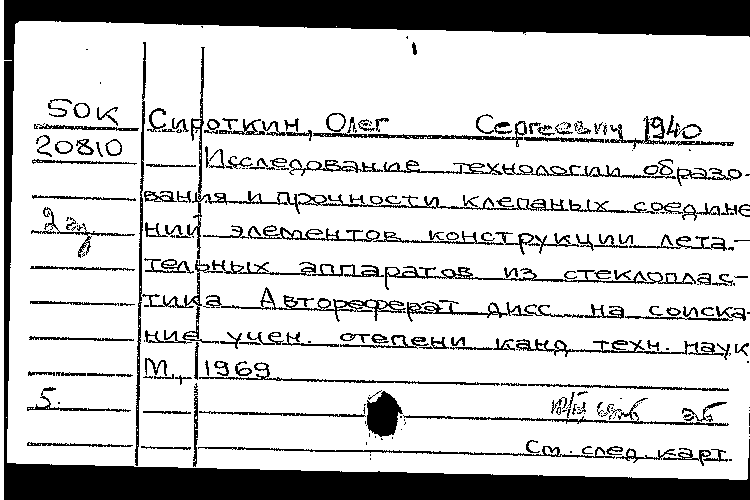 50К
Сироткин, Олег Сергеевич, 1940
20810
Исследование технологии образо-
вания и прочности клепаных соедине
2 эз
ний элементов конструкции лета-
тельных аппаратов из стеклоплас-
тика Автореферат дисс на соиска-
ние учен. степени канд техн. наук
М., 1969
5.
См. след. карт.